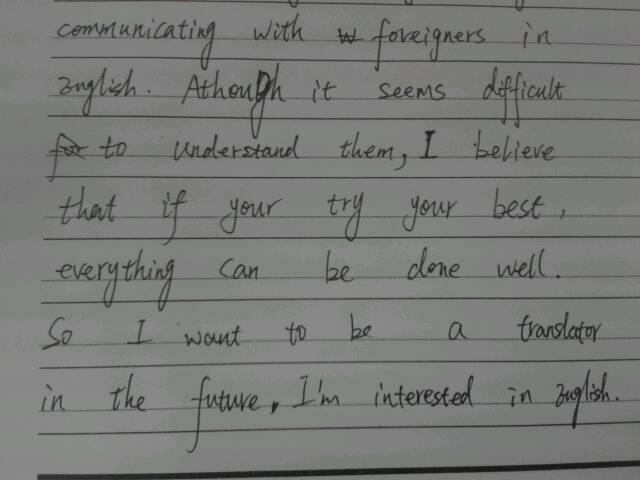 communicating with foreigners in
English. Athough it seems difficult
to understand them, I believe
that if your try your best,
everything can be done well.
So I want to be a translator
in the future, I'm interested in English.